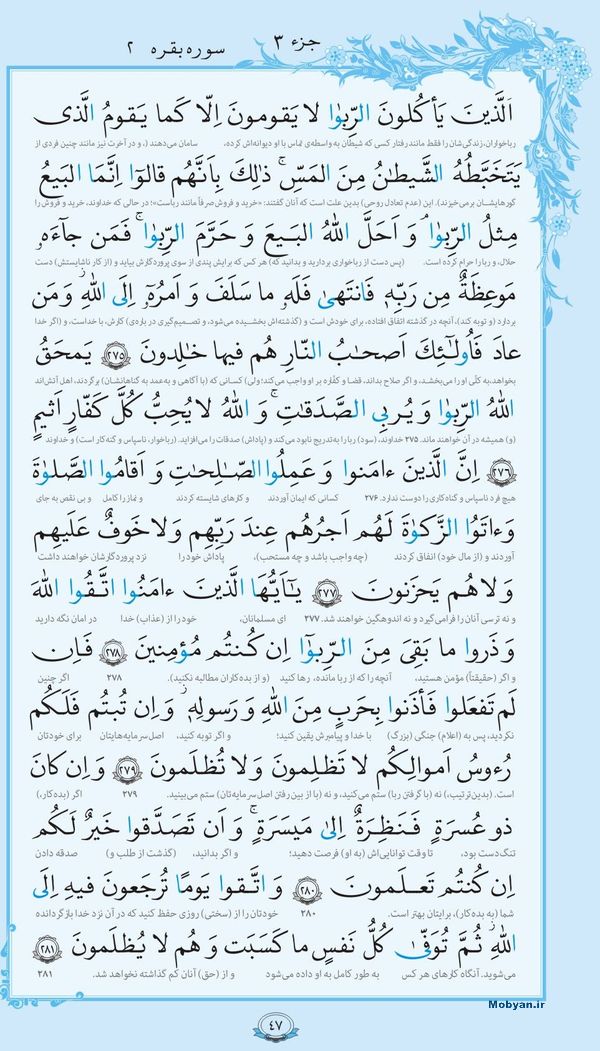 جزء ۳
سوره بقره ۲
اَلَّذینَ یَأکُلونَ الرِّبوٰا لا یَقومونَ اِلّا کَما یَقومُ الَّذی
رباخواران، زندگی‌شان را فقط مانند رفتار کسی که شیطان به واسطه‌ی تماس با او دیوانه‌اش کرده، سامان می‌دهند (، و در آخرت نیز مانند چنین فردی از
یَتَخَبَّطُهُ الشَّیطانُ مِنَ المَسِّ ۚ ذٰلِکَ بِاَنَّهُم قالوٓا اِنَّمَا البَیعُ
گورهایشان برمی‌خیزند). این (عدم تعادل روحی) بدین علت است که آنان گفتند: «خرید و فروش صرفاً مانند رباست»؛ در حالی که خداوند، خرید و فروش را
مِثلُ الرِّبوٰا ۗ وَ اَحَلَّ اللهُ البَیعَ وَ حَرَّمَ الرِّبوٰا ۚ فَمَن جآءَهٗ
حلال، و ربا را حرام کرده است. (پس دست از رباخواری بردارید و بدانید که) هر کس که برایش پندی از سوی پروردگارش بیاید و (از کار ناشایستش) دست
مَوعِظَةٌ مِن رَبِّهٖ فَانتَهیٰ فَلَهٗ ما سَلَفَ وَ اَمرُهٗٓ اِلَی اللهِ ۖ وَ مَن
بردارد (و توبه کند)، آنچه در گذشته اتفاق افتاده، برای خودش است و (گذشته‌اش بخشیده می‌شود)، و تصمیم‌گیری در باره‌ی) کارش، با خداست، و (اگر خدا
عادَ فَاُولٰٓئِکَ اَصحابُ النّارِ هُم فیها خالِدونَ ۲۷۵ یَمحَقُ
بخواهد، به کلّی او را می‌بخشد، و اگر صلاح بداند، قضا و کفّاره بر او واجب می‌کند؛ ولی) کسانی که (با آگاهی و به‌عمد به گناهانشان) برگردند، اهل آتش‌اند
اللهُ الرِّبوٰا وَ یُربِی الصَّدَقاتِ ۗ وَ اللهُ لا یُحِبُّ کُلَّ کَفّارٍ اَثیمٍ
(و) همیشه در آن خواهند ماند. ۲۷۵ خداوند، (سود) ربا را به‌تدریج نابود می‌کند و (پاداش) صدقات را می‌افزاید. (رباخوار، ناسپاس و گنه‌کار است) و خداوند
۲۷۶ اِنَّ الَّذینَ ءامَنوا وَ عَمِلُوا الصّالِحاتِ وَ اَقامُوا الصَّلوٰةَ
هیچ فرد ناسپاس و گناه‌کاری را دوست ندارد. ۲۷۶ کسانی که ایمان آوردند و کارهای شایسته کردند و نماز را کامل و بی نقص به جای
وَ ءاتَوُا الزَّکوٰةَ لَهُم اَجرُهُم عِندَ رَبِّهِم وَ لا خَوفٌ عَلَیهِم
آوردند و (از مال خود) انفاق کردند (چه واجب باشد و چه مستحب)، پاداش خود را نزد پروردگارشان خواهند داشت
وَ لا هُم یَحزَنونَ ۲۷۷ یٰٓاَیُّهَا الَّذینَ ءامَنُوا اتَّقُوا اللهَ
و نه ترسی آنان را فرا می‌گیرد و نه اندوهگین خواهند شد. ۲۷۷ ای مسلمانان، خود را از (عذاب) خدا در امان نگه دارید
وَ ذَروا ما بَقِیَ مِنَ الرِّبوٰٓا اِن کُنتُم مُؤمِنینَ ۲۷۸ فَاِن
و اگر (حقیقتاً) مؤمن هستید، آنچه را که از ربا مانده، رها کنید (و از بده‌کاران مطالبه نکنید). ۲۷۸ اگر چنین
لَم تَفعَلوا فَأذَنوا بِحَربٍ مِنَ اللهِ وَ رَسولِهٖ ۖ وَ اِن تُبتُم فَلَکُم
نکردید، پس به (اعلام) جنگی (بزرگ) با خدا و پیامبرش یقین کنید؛ و اگر توبه کنید، اصل سرمایه‌هایتان برای خودتان
رُءوسُ اَموالِکُم لا تَظلِمونَ وَ لا تُظلَمونَ ۲۷۹ وَ اِن کانَ
است. (بدین‌ترتیب)، نه (با گرفتن ربا) ستم می‌کنید، و نه (با از بین رفتن اصل سرمایه‌تان) ستم می‌بینید. ۲۷۹ اگر (بده‌کار)،
ذو عُسرَةٍ فَنَظِرَةٌ اِلیٰ مَیسَرَةٍ ۚ وَ اَن تَصَدَّقوا خَیرٌ لَکُم
تنگ‌دست بود، تا وقت توانایی‌اش (به او) فرصت دهید؛ و اگر بدانید، (گذشت از طلب و) صدقه دادن
اِن کُنتُم تَعلَمونَ ۲۸۰ وَ اتَّقوا یَومًا تُرجَعونَ فیهِ اِلَی
شما (به بده‌کار)، برایتان بهتر است. ۲۸۰ خودتان را از (سختی) روزی حفظ کنید که در آن نزد خدا بازگردانده
اللهِ ۖ ثُمَّ تُوَفّیٰ کُلُّ نَفسٍ ما کَسَبَت وَ هُم لا یُظلَمونَ ۲۸۱
می‌شوید. آنگاه کارهای هر کس به طور کامل به او داده می‌شود و از (حق) آنان کم گذاشته نخواهد شد. ۲۸۱
۴۷
Mobyan.ir